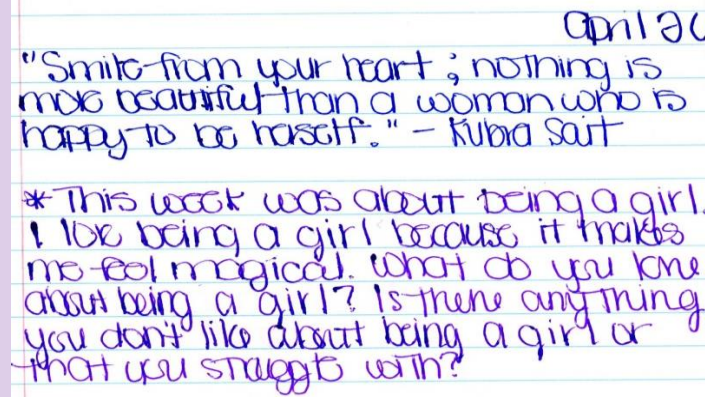 April 20
"Smile from your heart; nothing is
more beautiful than a woman who is
happy to be herself." - Kubra Sait
* This week was about being a girl.
I love being a girl because it makes
me feel magical. What do you love
about being a girl? Is there anything
you don't like about being a girl or
that you struggle with?